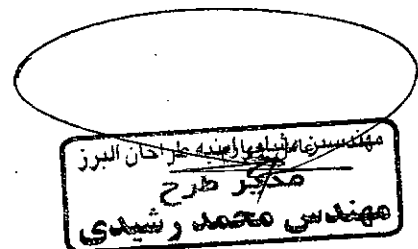 مهندسین مشاور ابنیه طراحان البرز
مدیر طرح
مهندس محمد رشیدی